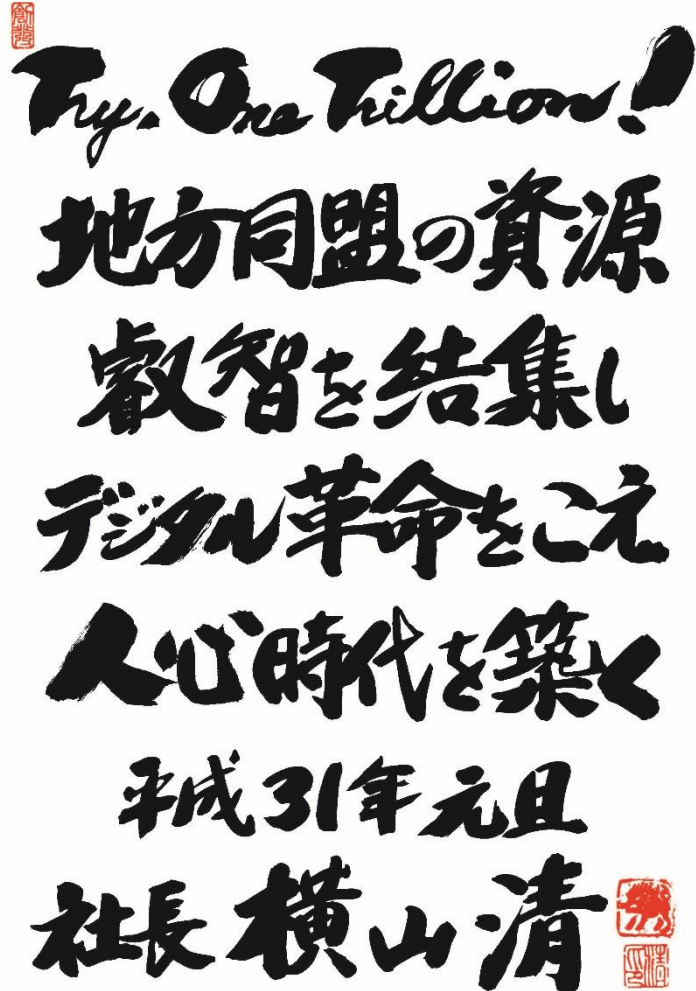 Try, One Trillion!
地方同盟の資源
叡智を結集し
デジタル革命をこえ
人心時代を築く
平成31年元旦
社長 横山清